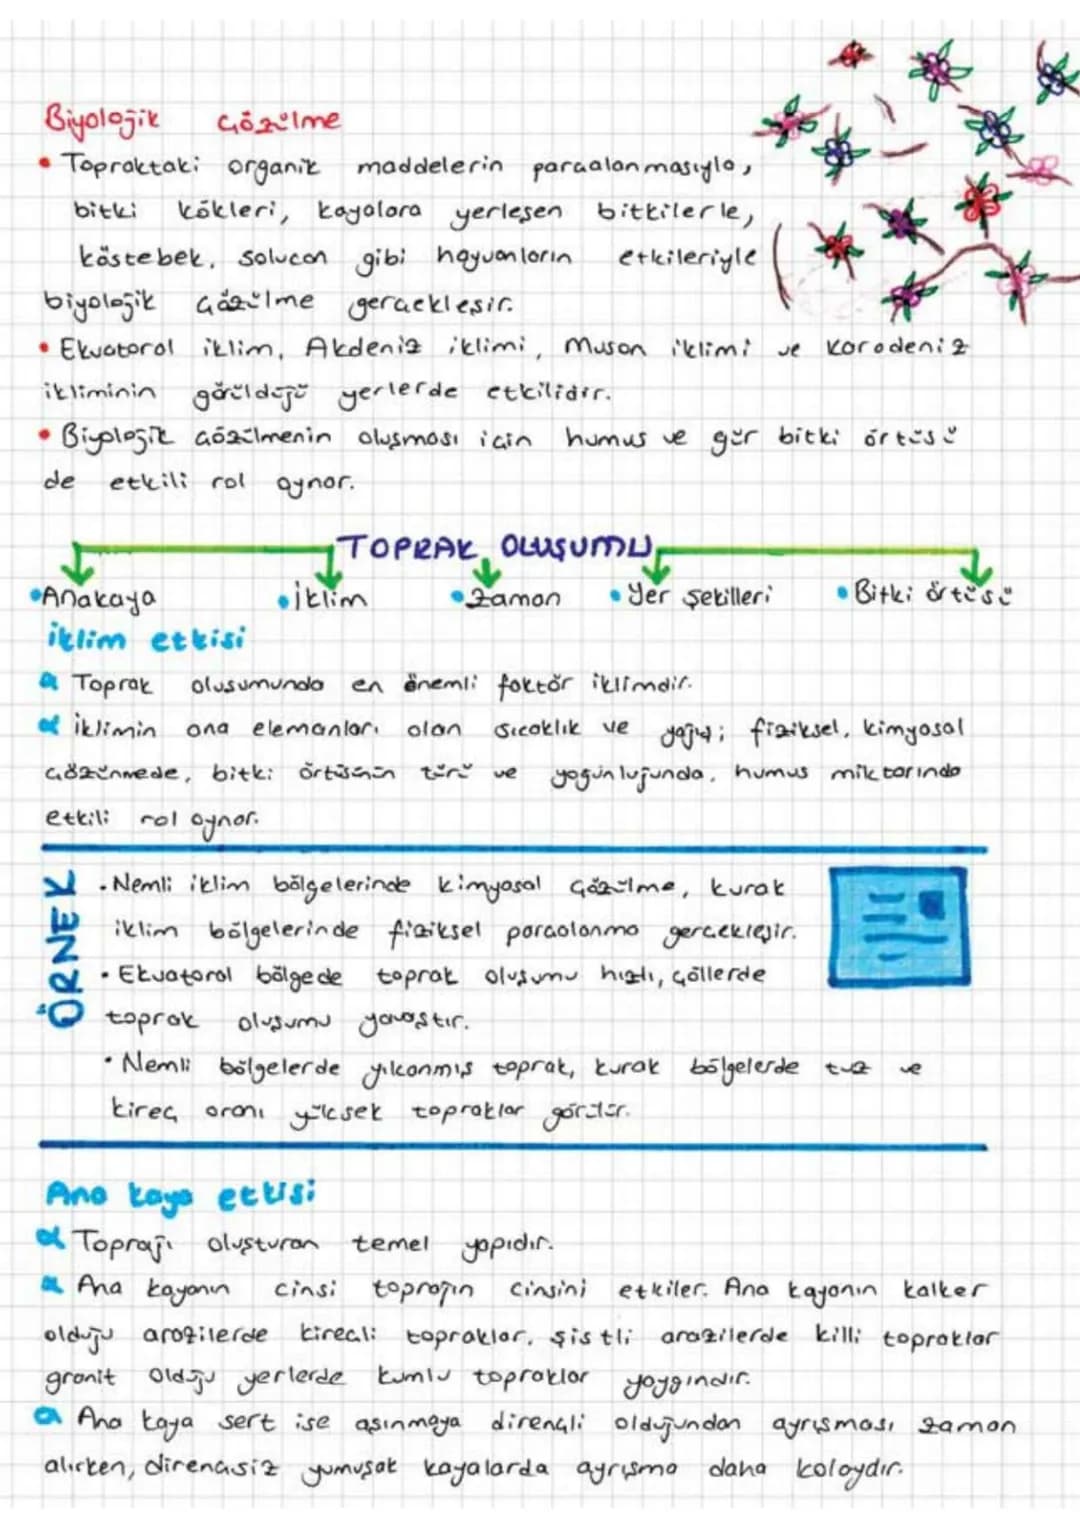 Biyolojik Çözülme
• Topraktaki organik maddelerin parçalanmasıyla,
bitki kökleri, kayalara yerleşen bitkilerle,
köstebek, solucan gibi hayvanların etkileriyle
biyolojik çözülme gerçekleşir.
• Ekvatoral iklim, Akdeniz iklimi, Muson iklimi ve Karadeniz
ikliminin görüldüğü yerlerde etkilidir.
• Biyolojik çözülmenin oluşması için humus ve gür bitki örtüsü
de etkili rol oynar.
TOPRAK OLUŞUMU
• Anakaya • İklim • Zaman • Yer Şekilleri • Bitki örtüsü
iklim etkisi
Toprak olusumunda en önemli faktör iklimdir.
İklimin ana elemanları olan sıcaklık ve yağış; fiziksel, kimyasal
çözünmede, bitki örtüsünün türü ve yoğunluğunda, humus miktarında
etkili rol oynar.
ÖRNEK
• Nemli iklim bölgelerinde kimyasal çözülme, kurak
iklim bölgelerinde fiziksel parçalanma gerçekleşir.
• Ekvatoral bölgede toprak oluşumu hızlı, çöllerde
toprak oluşumu yavaştır.
• Nemli bölgelerde yıkanmış toprak, kurak bölgelerde tuz ve
kireç oranı yüksek topraklar görülür.
Ana kaya etkisi
Toprağı oluşturan temel yapıdır.
Ana kayanın cinsi toprağın cinsini etkiler. Ana kayanın kalker
olduğu arazilerde kireçli topraklar, şistli arazilerde killi topraklar
granit olduğu yerlerde kumlu topraklar yaygındır.
Ana kaya sert ise aşınmaya dirençli olduğundan ayrışması zaman
alırken, dirençsiz yumuşak kayalarda ayrışma daha kolaydır.